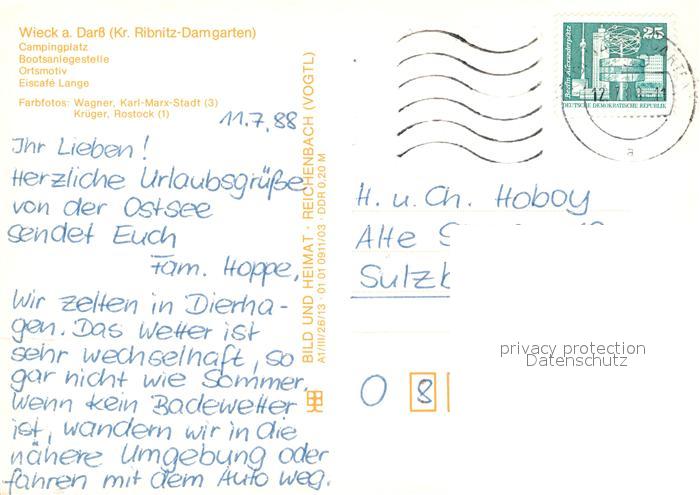 Wieck a. Darß (Kr. Ribnitz-Damgarten)
Campingplatz
Bootsanlegestelle
Ortsmotiv
Eiscafé Lange
Farbfotos: Wagner, Karl-Marx-Stadt (3)
Krüger, Rostock (1)
11.7.88
Ihr Lieben!
Herzliche Urlaubsgrüße
von der Ostsee
sendet Euch
Fam. Hoppe,
Wir zelten in Dierha-
gen. Das Wetter ist
sehr wechselhaft, so
gar nicht wie Sommer.
Wenn kein Badewetter
ist, wandern wir in die
nähere Umgebung oder
fahren mit dem Auto weg.
BILD UND HEIMAT · REICHENBACH (VOGTL)
A1/III/26/13 01 01 0911/03 · DDR 0,20 M
25
Berlin, Alexanderplatz
DEUTSCHE DEMOKRATISCHE REPUBLIK
H. u. Ch. Hoboy
Alte
Sulzb
O 8
privacy protection
Datenschutz